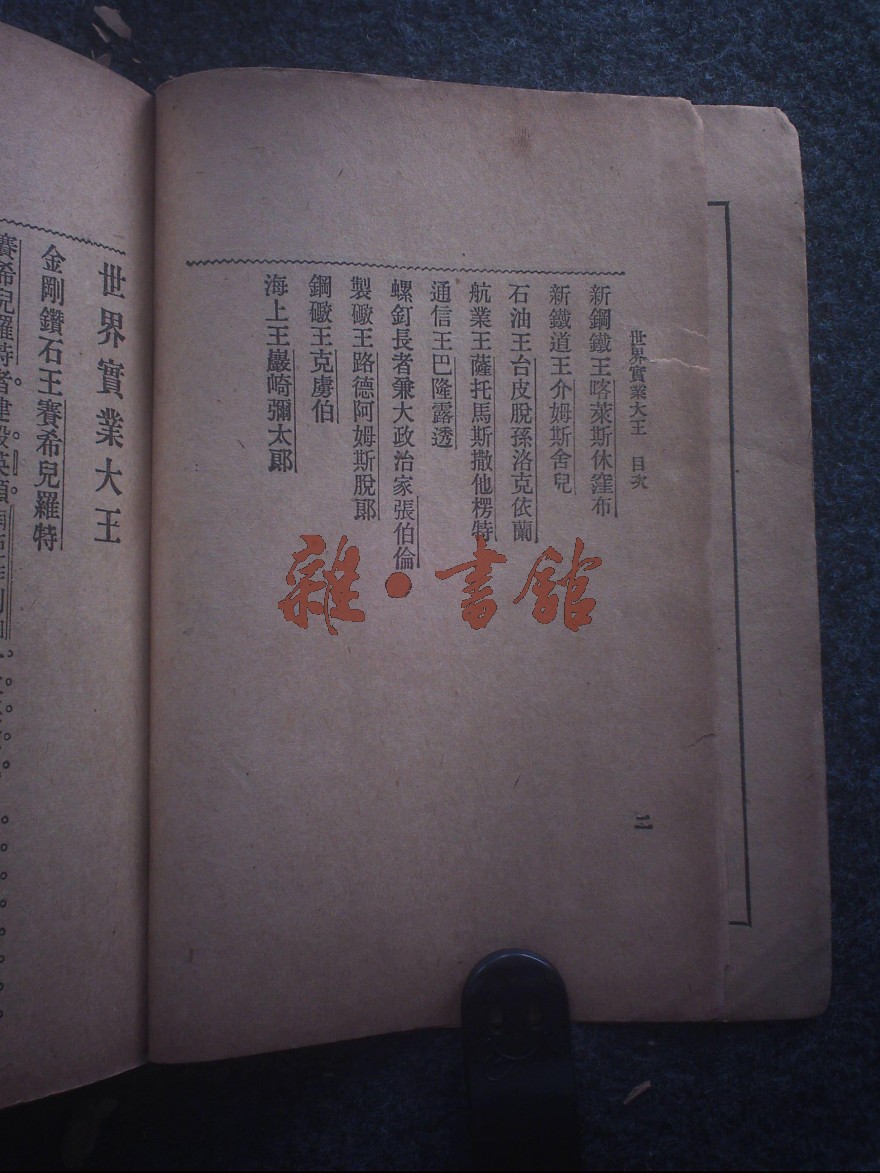 世界實業大王　目次
新鋼鐵王喀萊斯休窪布
新鐵道王介姆斯舍兒
石油王台皮脫孫洛克依蘭
航業王薩托馬斯撒他楞特
通信王巴隆露透
螺釘長者兼大政治家張伯倫
製礮王路德阿姆斯脫郞
鋼礮王克虜伯
海上王巖崎彌太郞
二
世界實業大王
金剛鑽石王賽希兒羅特
賽希兒羅特者建設英領
雜·書館